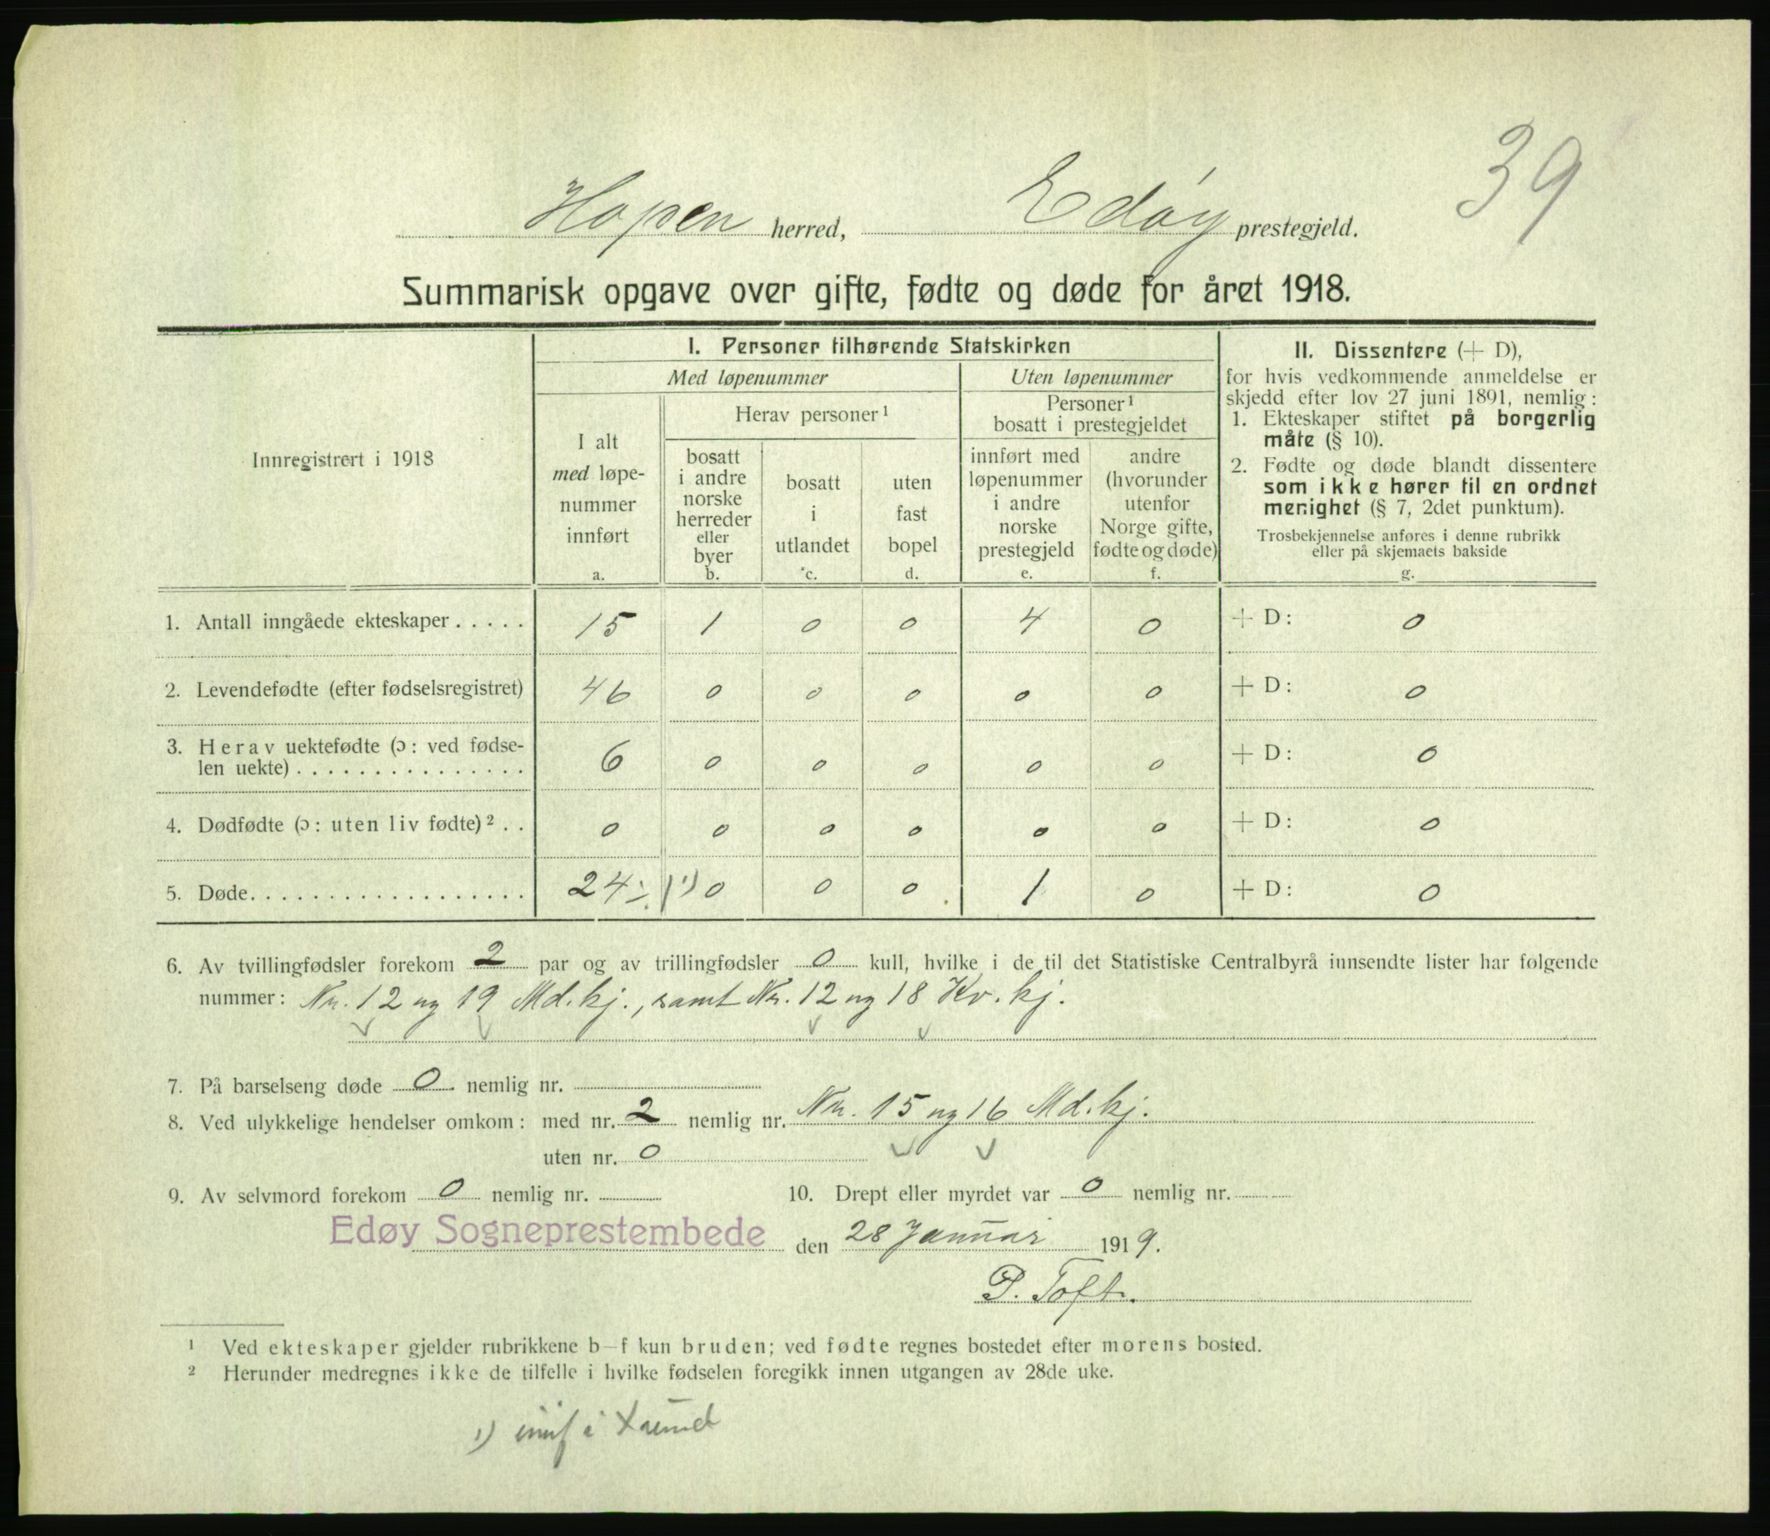 39
Hopen herred, Edøy prestegjeld.
Summarisk opgave over gifte, fødte og døde for året 1918.
Innregistrert i 1918
I. Personer tilhørende Statskirken
Med løpenummer
Uten løpenummer
I alt med løpe-nummer innført a.
Herav personer ¹
bosatt i andre norske herreder eller byer b.
bosatt i utlandet c.
uten fast bopel d.
Personer ¹ bosatt i prestegjeldet
innført med løpenummer i andre norske prestegjeld e.
andre (hvorunder utenfor Norge gifte, fødte og døde) f.
II. Dissentere (+ D),
for hvis vedkommende anmeldelse er
skjedd efter lov 27 juni 1891, nemlig:
1. Ekteskaper stiftet på borgerlig
måte (§ 10).
2. Fødte og døde blandt dissentere
som ikke hører til en ordnet
menighet (§ 7, 2det punktum).
Trosbekjennelse anføres i denne rubrikk
eller på skjemaets bakside
g.
1. Antall inngåede ekteskaper ..... 15 1 0 0 4 0 + D: 0
2. Levendefødte (efter fødselsregistret) 46 0 0 0 0 0 + D: 0
3. Herav uektefødte (ɔ: ved fødse-
len uekte) ............... 6 0 0 0 0 0 + D: 0
4. Dødfødte (ɔ: uten liv fødte) ² .. 0 0 0 0 0 0 + D: 0
5. Døde .................. 24 ÷ 1 ¹) 0 0 0 1 0 + D: 0
6. Av tvillingfødsler forekom 2 par og av trillingfødsler 0 kull, hvilke i de til det Statistiske Centralbyrå innsendte lister har følgende
nummer: Nr. 12 og 19 Md.kj., samt Nr. 12 og 18 Kv.kj.
7. På barselseng døde 0 nemlig nr.
8. Ved ulykkelige hendelser omkom: med nr. 2 nemlig nr. Nr. 15 og 16 Md.kj.
uten nr. 0
9. Av selvmord forekom 0 nemlig nr.
10. Drept eller myrdet var 0 nemlig nr.
Edøy Sogneprestembede den 28 Januar 1919.
P. Toft.
¹ Ved ekteskaper gjelder rubrikkene b–f kun bruden; ved fødte regnes bostedet efter morens bosted.
² Herunder medregnes ikke de tilfelle i hvilke fødselen foregikk innen utgangen av 28de uke.
¹) i